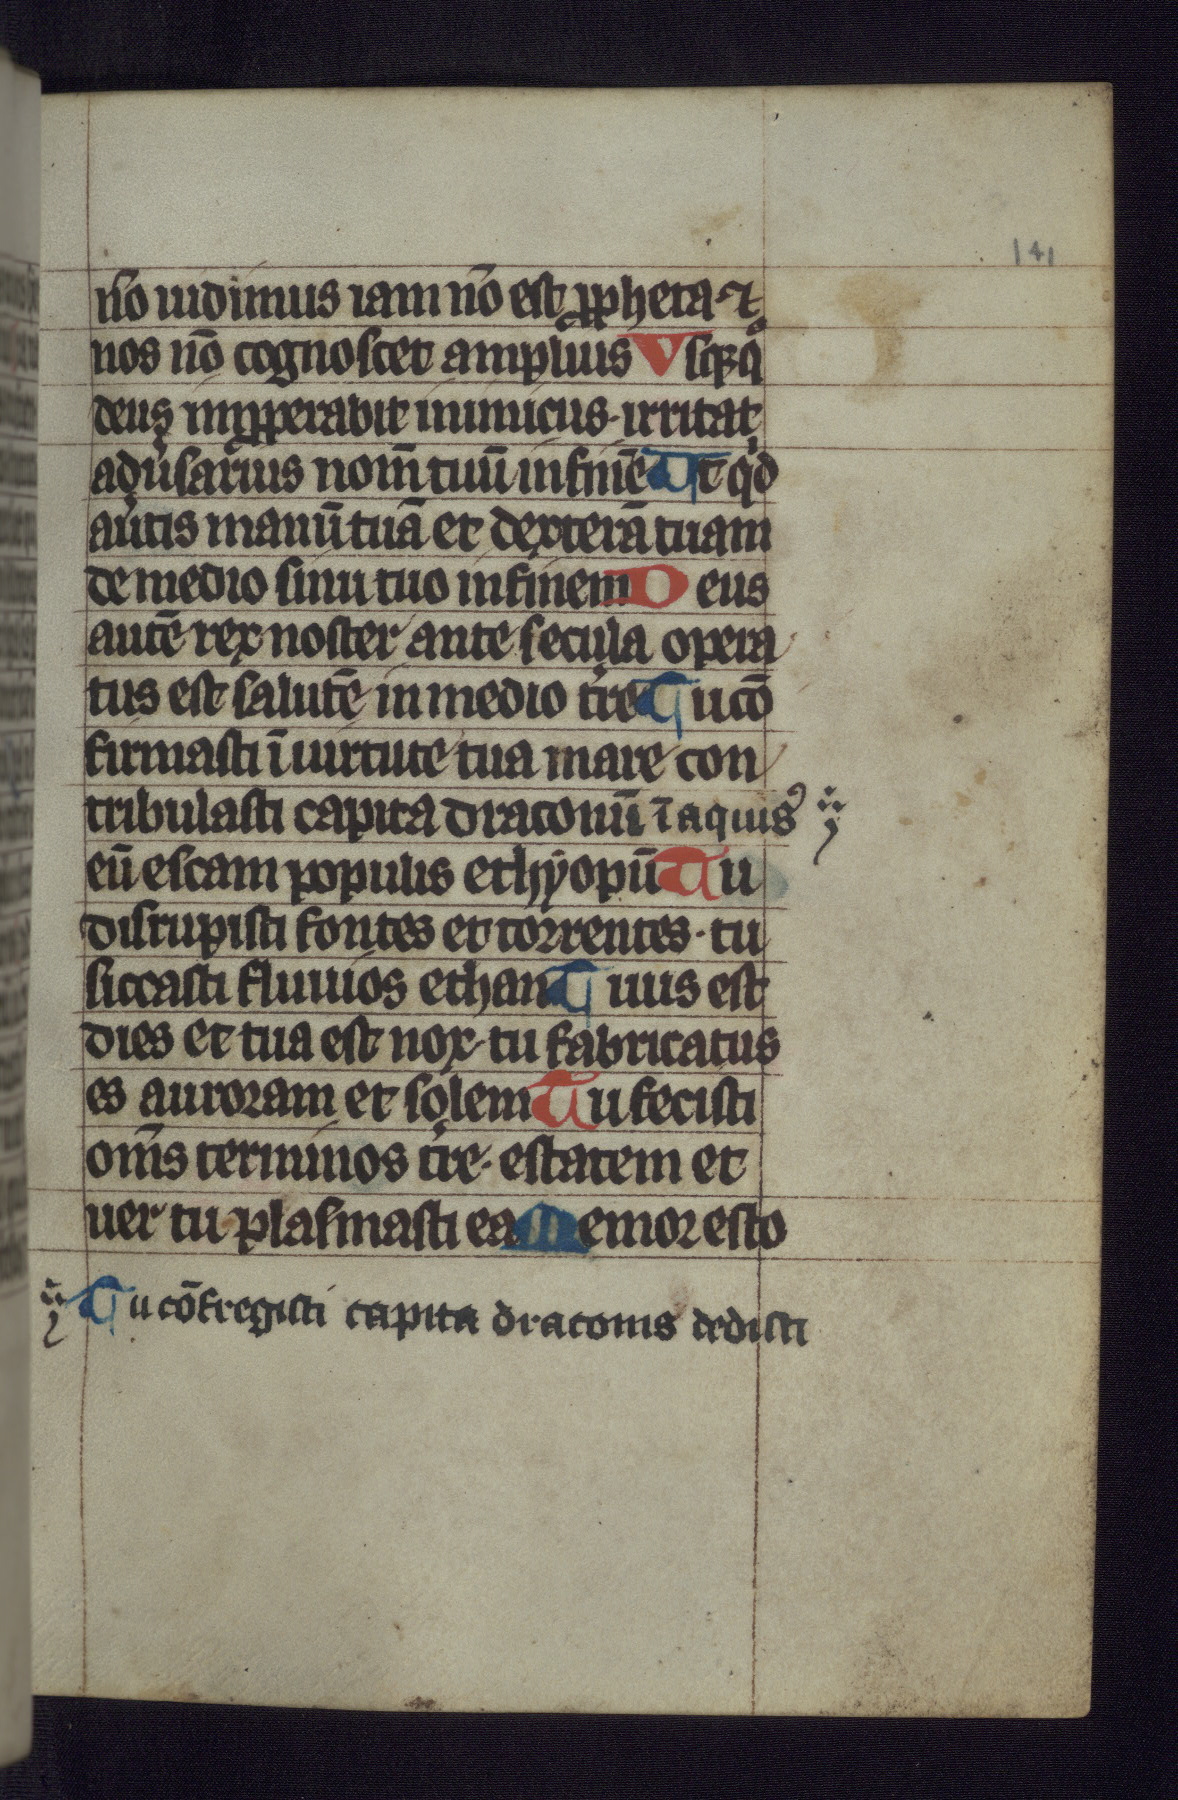 141
nō uidimus iam nō est ꝓpheta ⁊
nos nō cognoscet amplius Vsqꝫ qͦ
deus imꝓperabit inimicus· irritat
adůsarius nom̄ tuū in finē Ut qͥd
aũtis manū tuā et dexterā tuam
de medio sinu tuo in finem Deus
autē rex noster ante secula opera
tus est salutē in medio tr̄e Tu cō
firmasti ī uirtute tua mare con
tribulasti capita draconū ī aquis
eū escam populis ethyopū Tu
disrupisti fontes et torrentes· tu
siccasti fluuios ethan Tuus est
dies et tua est nox· tu fabricatus
es auroram et solem Tu fecisti
om̄s terminos tr̄e· estatem et
uer tu plasmasti ea Memor esto
Tu cōfregisti capita draconis dedisti